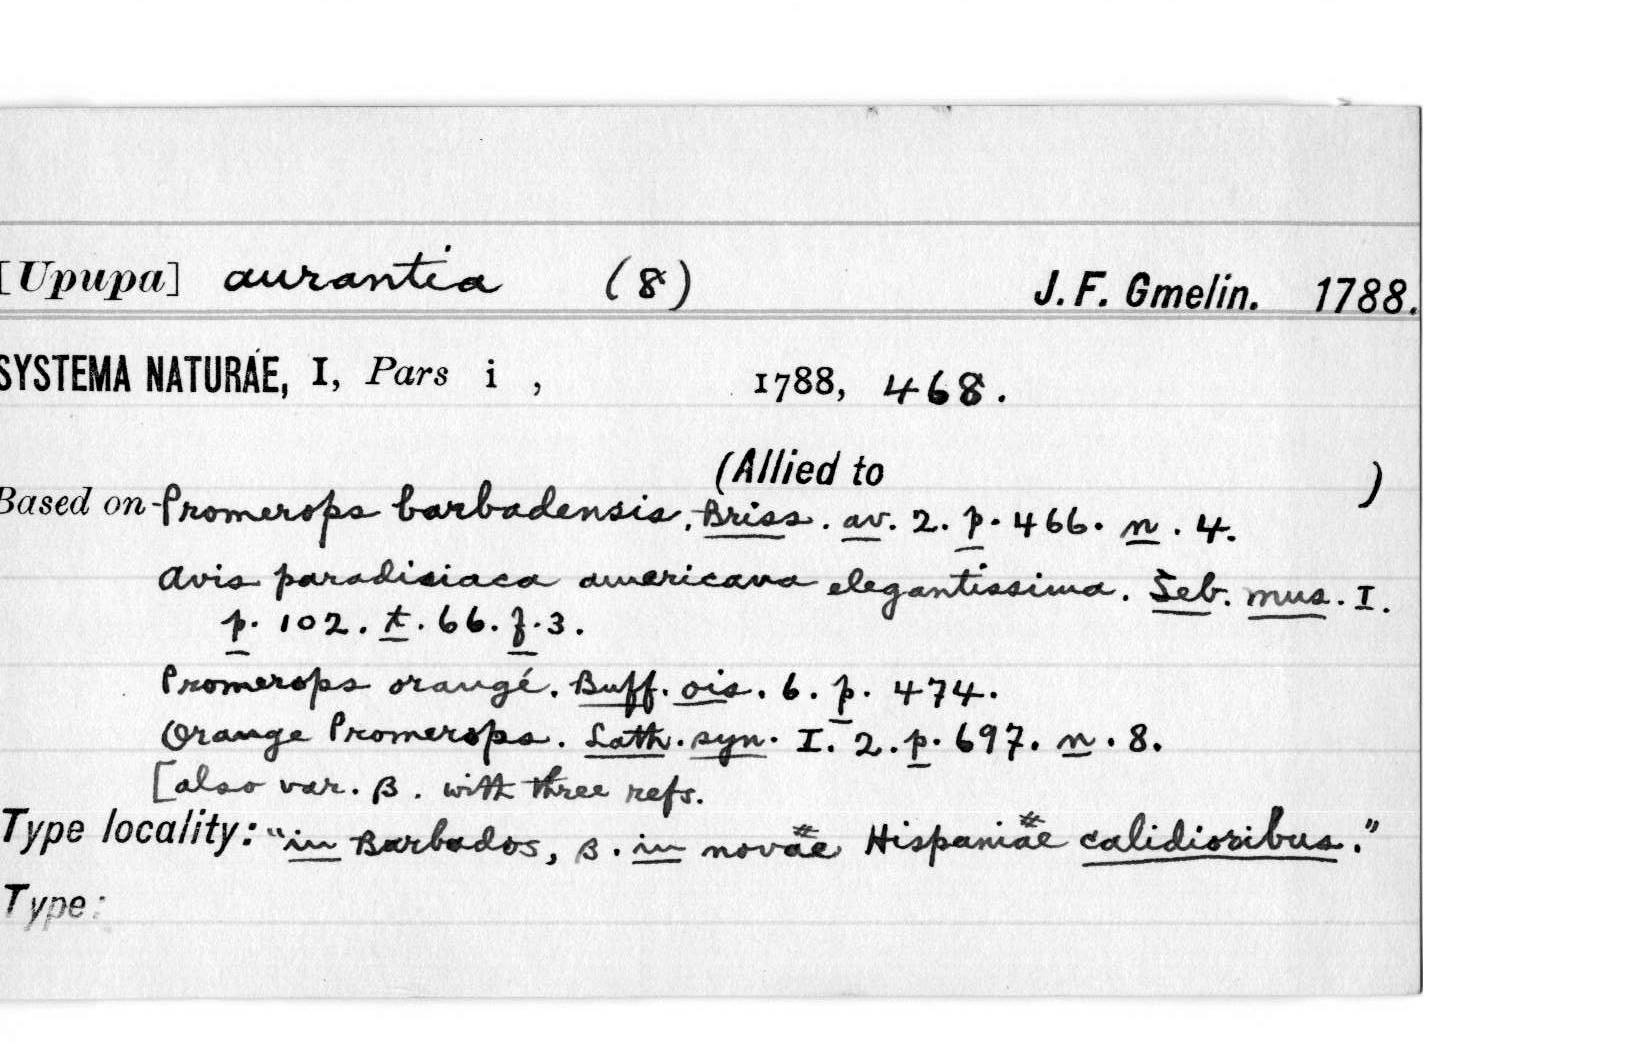 [Upupa] aurantia (8) J. F. Gmelin. 1788.
SYSTEMA NATURAE, I, Pars i , 1788, 468.
(Allied to )
Based on Promerops barbadensis. Briss. av. 2. p. 466. n. 4.
Avis paradisiaca americana elegantissima. Seb. mus. I.
p. 102. t. 66. f. 3.
Promerops orangé. Buff. ois. 6. p. 474.
Orange Promerops. Lath. syn. I. 2. p. 697. n. 8.
[also var. β. with three refs.
Type locality: "in Barbados, β. in novae Hispaniae calidioribus."
Type: